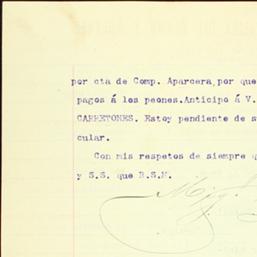 por cta de Comp. Aparcera, por que
pagos á los peones. Anticipo á V.
CARRETONES. Estoy pendiente de s
cular.
Con mis respetos de siempre q
y S.S. que B.S.M.